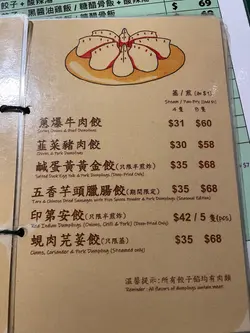 餃子+酸辣湯
黑醋油雞飯 / 糖醋骨飯
$ 69
蒸 / 煎 (加$1)
Steam / Pan-Fry (add $1)
4隻 8隻
蔥爆牛肉餃 $31 $60
Scallion, Onions & Beef Dumplings
韮菜豬肉餃 $30 $58
Chives & Pork Dumplings
鹹蛋黃黃金餃(只限半煎炸) $35 $68
Salted Duck Egg Yolk & Pork Dumplings (Semi-Fried Only)
五香芋頭臘腸餃(期間限定) $35 $68
Taro & Chinese Dried Sausages with Five Spice Powder & Pork Dumplings (Seasonal Edition)
印第安餃(只限半煎炸) $42 / 5隻(pcs)
Red Indian Dumplings (Onions, Chili & Pork) (Semi-Fried Only)
蜆肉芫荽餃(只限蒸) $35 $68
Clams, Coriander & Pork Dumpling (Steamed only)
溫馨提示:所有餃子餡均有肉類
Reminder: All flavors of dumplings contain meat.